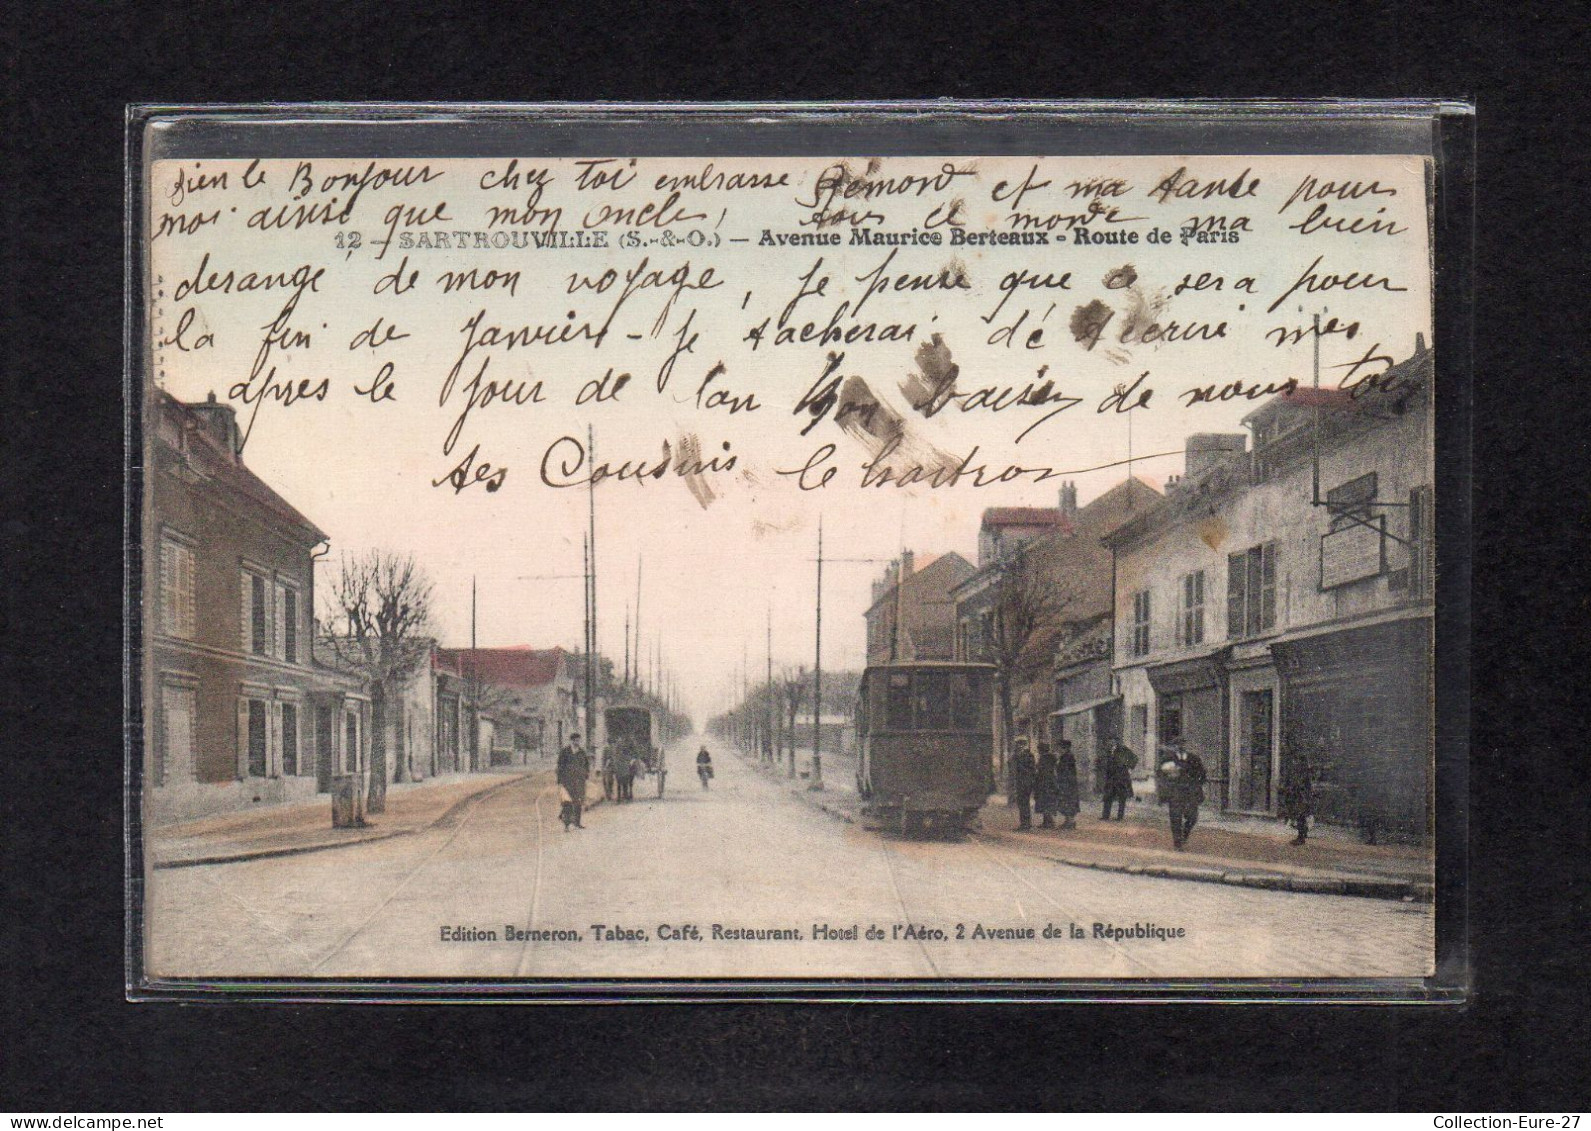 bien le Bonjour chez toi embrasse Rémond et ma tante pour
moi ainsi que mon oncle, tous ce monde ma bien
12 - SARTROUVILLE (S.-&-O.) - Avenue Maurice Berteaux - Route de Paris
derangé de mon voyage, je pense que ce sera pour
la fin de Janvier - Je tacherai dé décrire mes
apres le jour de lan Bon baiser de nous tous
tes Cousins le
Edition Berneron, Tabac, Café, Restaurant, Hotel de l'Aéro, 2 Avenue de la République
Collection-Eure-27